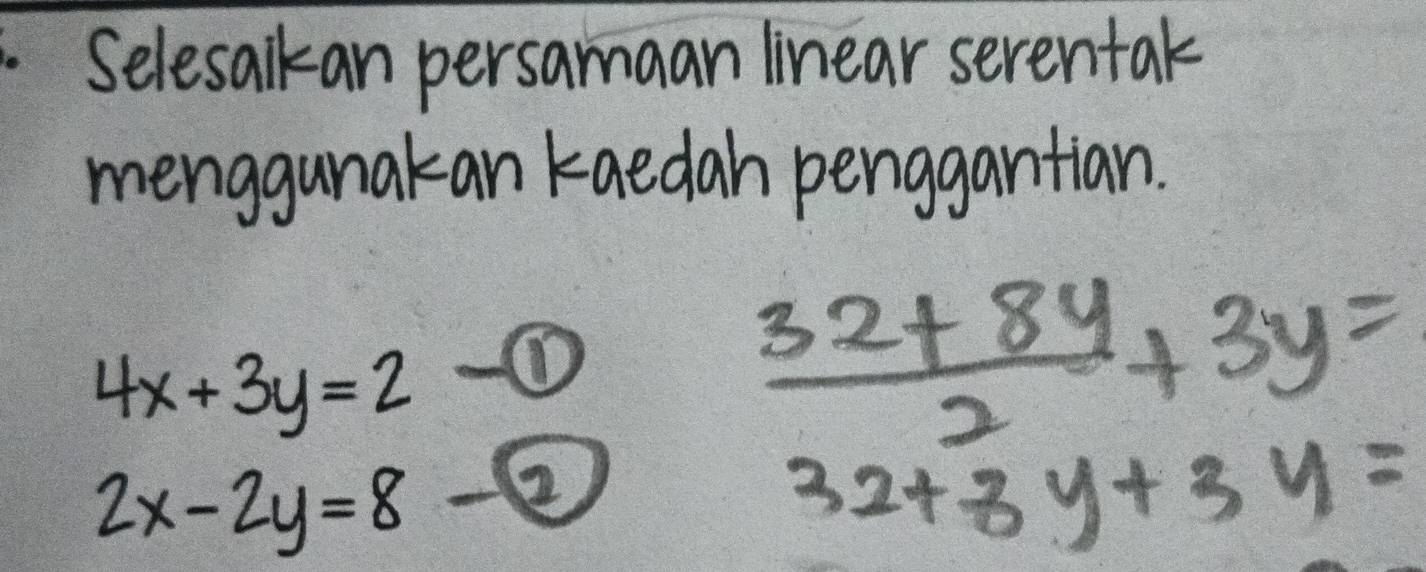 Selesaikan persamaan linear serentak
menggunakan kaedah penggantian.
4x + 3y = 2 - ①
2x - 2y = 8 - ②
32 + 8y / 2 + 3y =
32 + 8y + 3y =